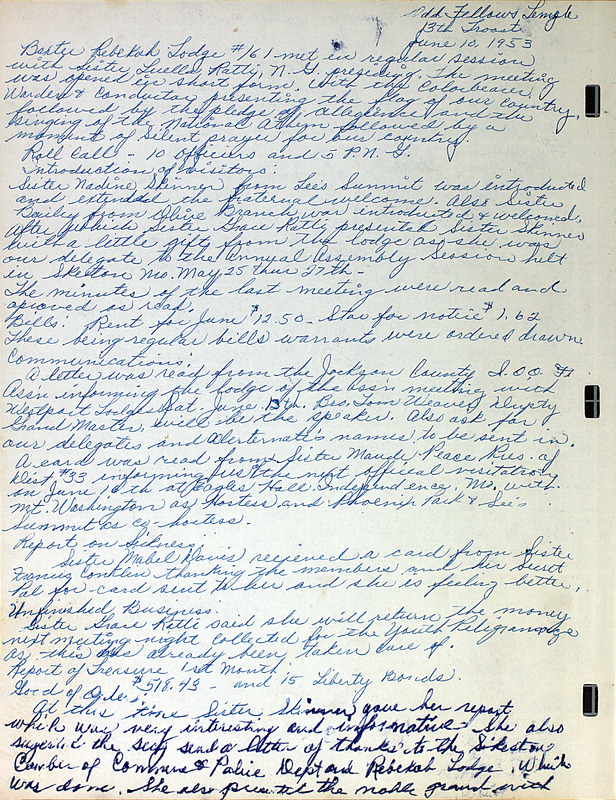 Odd Fellows Temple
13th Troost
June 10, 1953
Bertie Rebekah Lodge #161 met in regular session
with Sister Luella Ratty, N.G. presiding. The meeting
was opened in short form. With the Colorbearer,
Warden & Conductor presenting the flag of our country,
followed by the pledge of Allegience and the
singing of the National Athem followed by a
moment of silent prayer for our country.
Roll Call - 10 Officers and 5 P.N.G.
Introduction of Visitors:
Sister Nadine Skinner from Lee's Summit was introduced
and extended the fraternal welcome. Also Sister
Bailey from Olive Branch was introduced & welcomed,
after which Sister Grace Ratti presented Sister Skinner
with a little gift from the lodge as she was
our delegate to the Annual Assembly Session held
in Sikeston Mo. May 25 thur 27th -
The minutes of the last meeting were read and
aproved as read.
Bills: Rent for June $12.50 - Star for notice $1.62
These being regular bills warrants were ordered drawn
Communications:
A letter was read from the Jackson County I.O.O.F.
Ass'n informing the lodge of the Ass'n meeting with
Westport Lodge Sat. June 13th. Bro. Tom Weaver, Deputy
Grand Master, will be the speaker. Also ask for
our delegates and alternates names to be sent in.
A card was read from Sister Maude Peace Pres. of
Dist. #33 informing us the next official visitation
on June at Eagles Hall Independence, Mo. with
Mt. Washington as Hostess and Phoenix Park & Lee's
Summit as co-hostess.
Report on Sickness:
Sister Mabel Davis recieved a card from Sister
Francis Contlin thanking the members and her Secret
Pal for card sent to her and she is feeling better.
Unfinished Business:
Sister Grace Ratti said she will return the money
next meeting night collected for the Youth Pilgrimage
as this has already been taken care of.
Report of Treasure 1st Month:
$578.43 - and 15 Liberty Bonds.
Good of Order:
At this time Sister Skinner gave her report
which was very interesting and informative - She also
sugested the Secy send a letter of thanks to the Sikeston
Camber of Commerce & Police Dept and Rebekah Lodge. Which
was done. She also presented the noble grand with